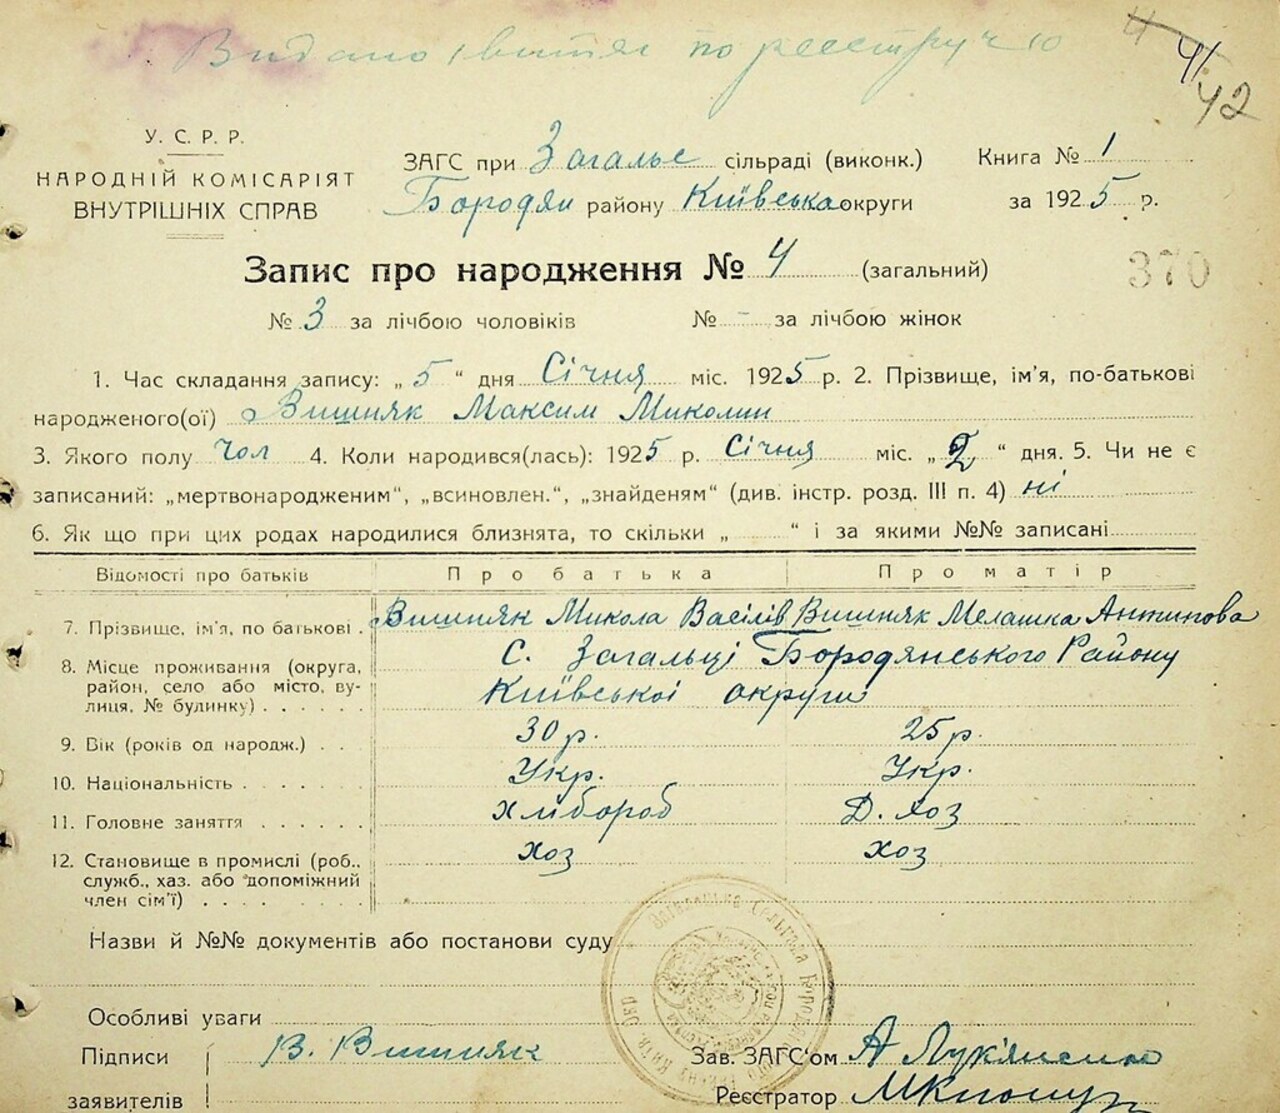 Видано витяг по реєстру ч 10
41
42
У. С. Р. Р.
НАРОДНІЙ КОМІСАРІЯТ
ВНУТРІШНІХ СПРАВ
ЗАГС при Загальє сільраді (виконк.)
Бородян району Київська округи
Книга № 1
за 1925 р.
Запис про народження № 4 (загальний)
370
№ 3 за лічбою чоловіків № - за лічбою жінок
1. Час складання запису: „ 5 “ дня Січня міс. 1925 р. 2. Прізвище, ім'я, по-батькові
народженого(ої) Вишняк Максим Миколин
3. Якого полу Чол 4. Коли народився(лась): 1925 р. Січня міс. „ 2 “ дня. 5. Чи не є
записаний: „мертвонародженим“, „всиновлен.“, „знайденям“ (див. інстр. розд. III п. 4) ні
6. Як що при цих родах народилися близнята, то скільки „ “ і за якими №№ записані
Відомості про батьків Про батька Про матір
7. Прізвище, ім'я, по батькові . Вишняк Микола Васілів Вишняк Мелашка Антипова
8. Місце проживання (округа, район, село або місто, вулиця, № будинку) . . . . . . С. Загальці Бородянського Району
Київської округи
9. Вік (років од народж.) . . . 30 р. 25 р.
10. Національність . . . . . . . Укр. Укр.
11. Головне заняття . . . . . . хлібороб Д. хоз
12. Становище в промислі (роб., служб., хаз. або допоміжний член сім'ї) . . . . . . хоз хоз
Назви й №№ документів або постанови суду
Особливі уваги
Підписи заявителів В. Вишняк
Зав. ЗАГС'ом А Лук'яненко
Реєстратор